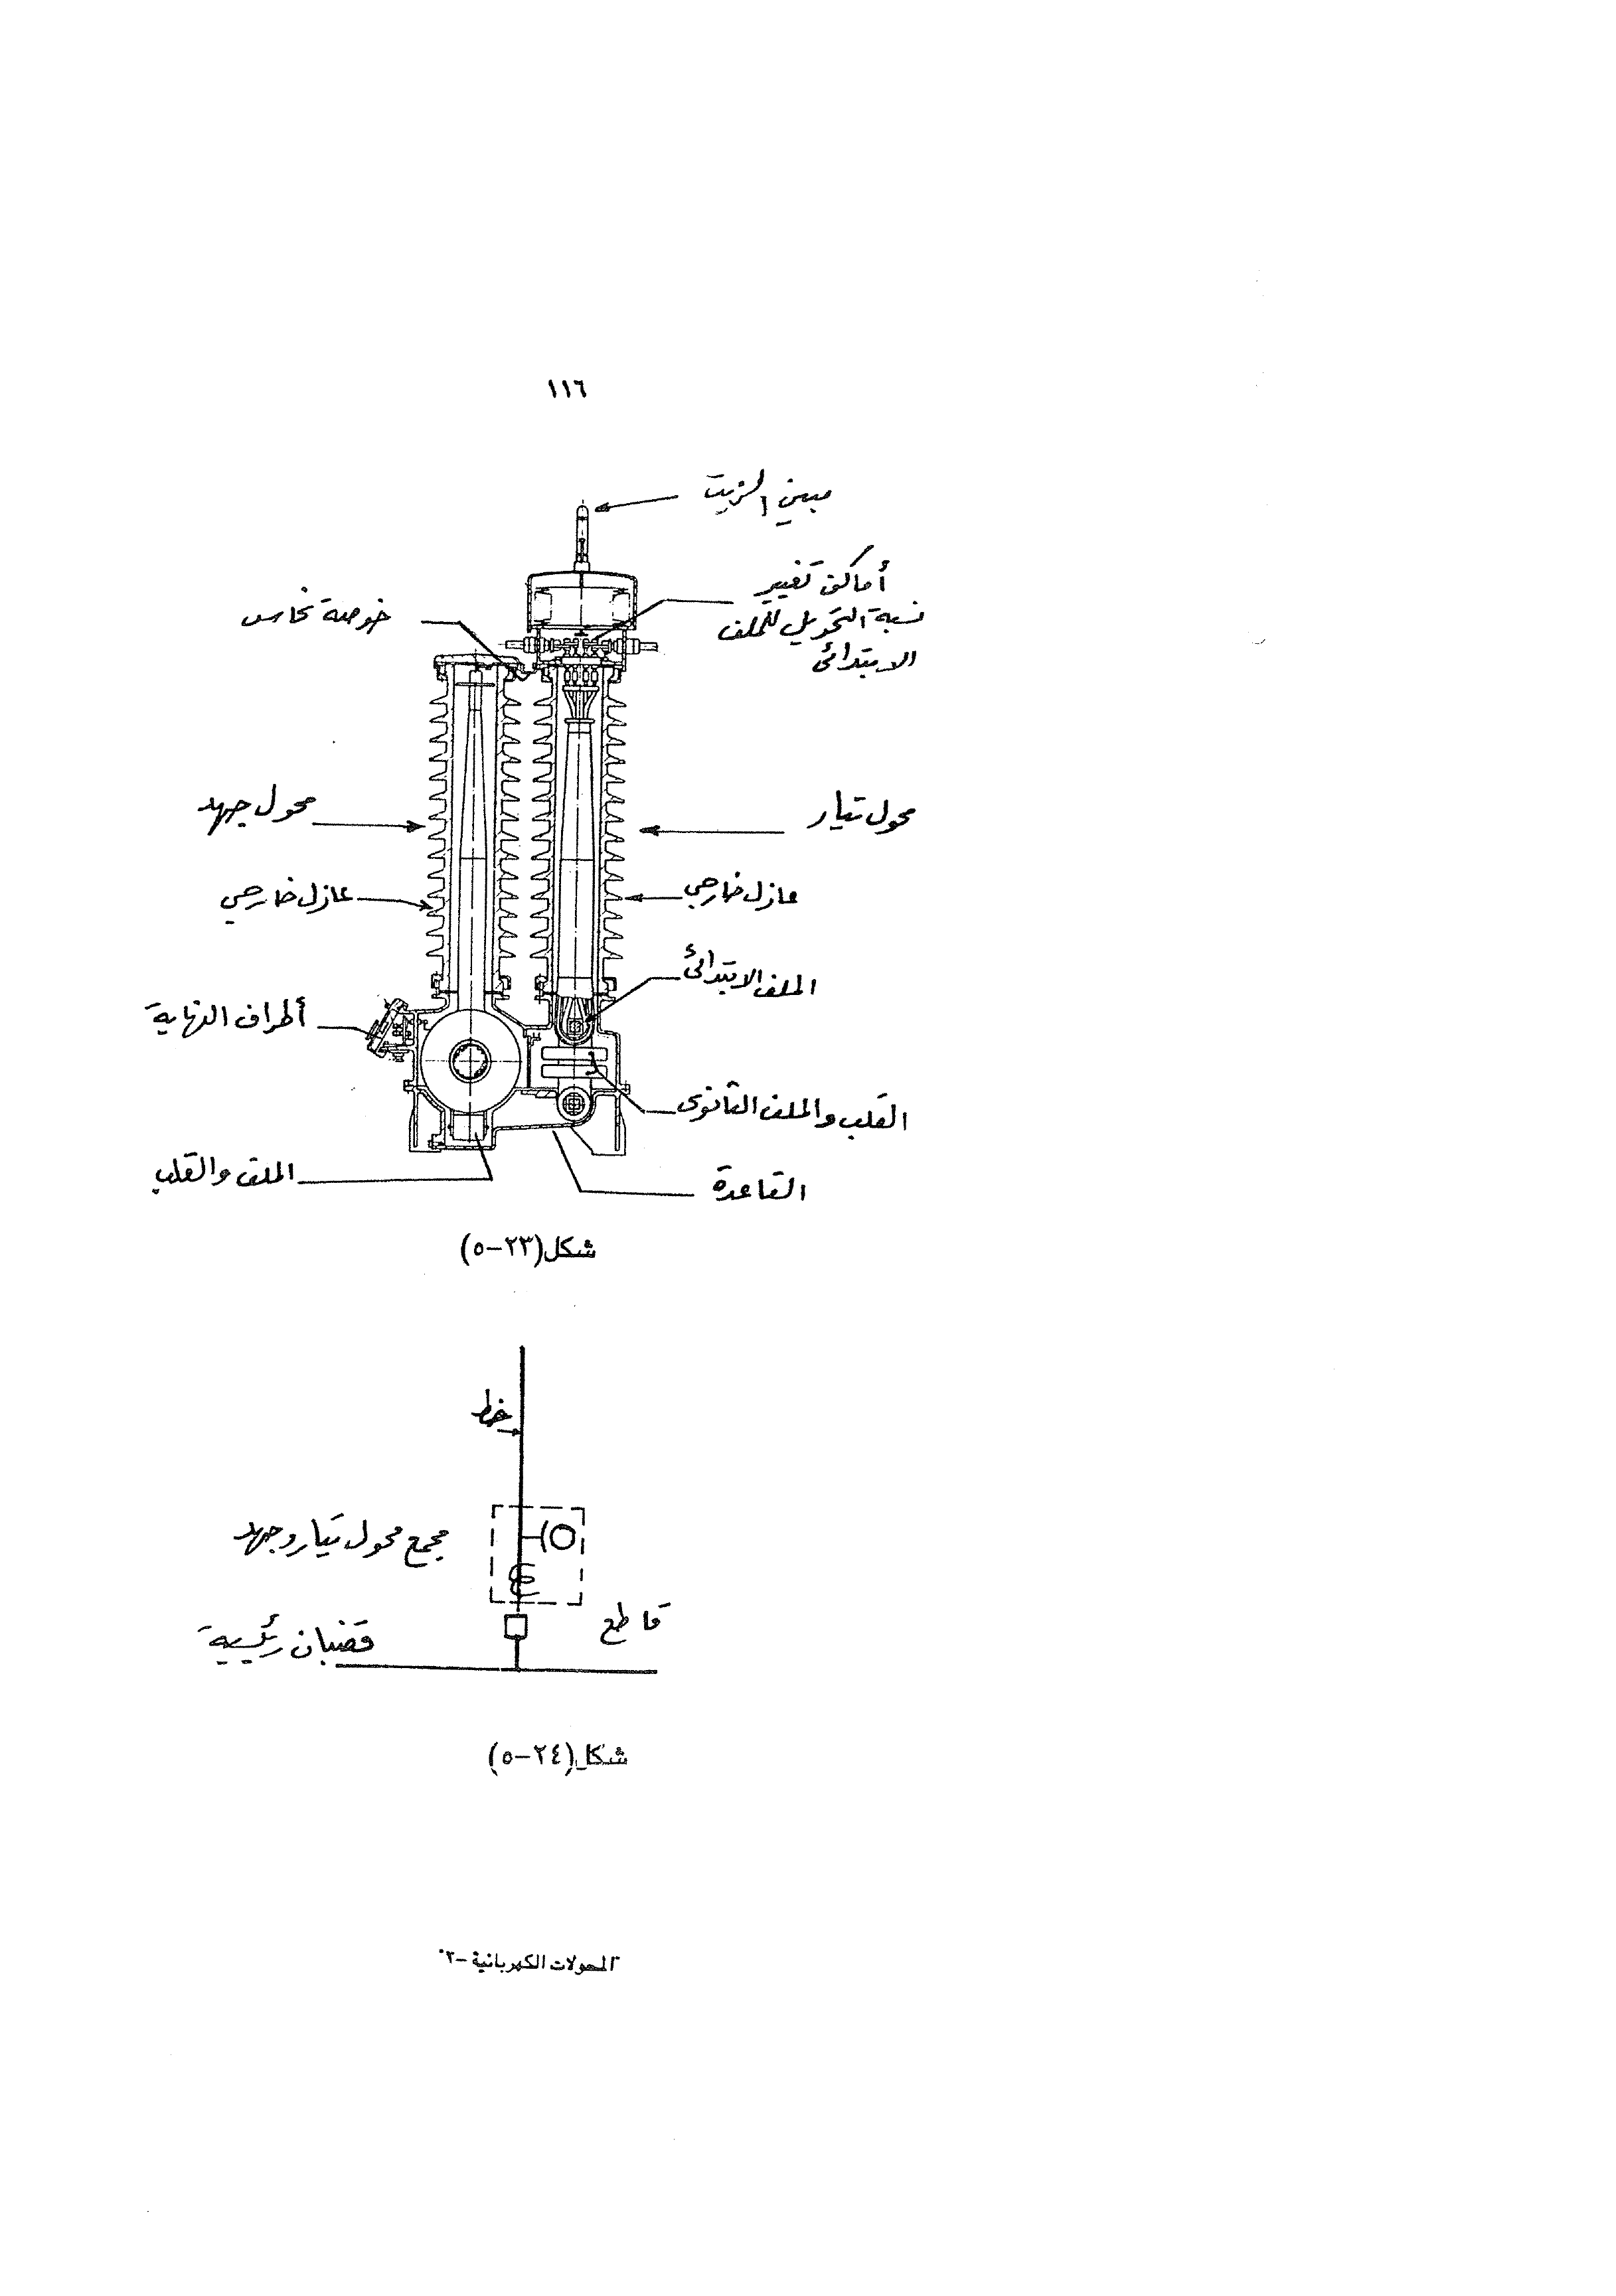 ١١٦
مبين الزيت
أماكن تغيير
نسبة التحويل للملف
الابتدائى
خوصة نحاس
محول جهد
محول تيار
عازل خارجي
عازل خارجي
الملف الابتدائى
أطراف النهاية
القلب والملف الثانوى
الملف والقلب
القاعدة
شكل(٢٣-٥)
خط
مجمع محول تيار وجهد
قاطع
قضبان رئيسية
شكل(٢٤-٥)
المحولات الكهربائية -٢